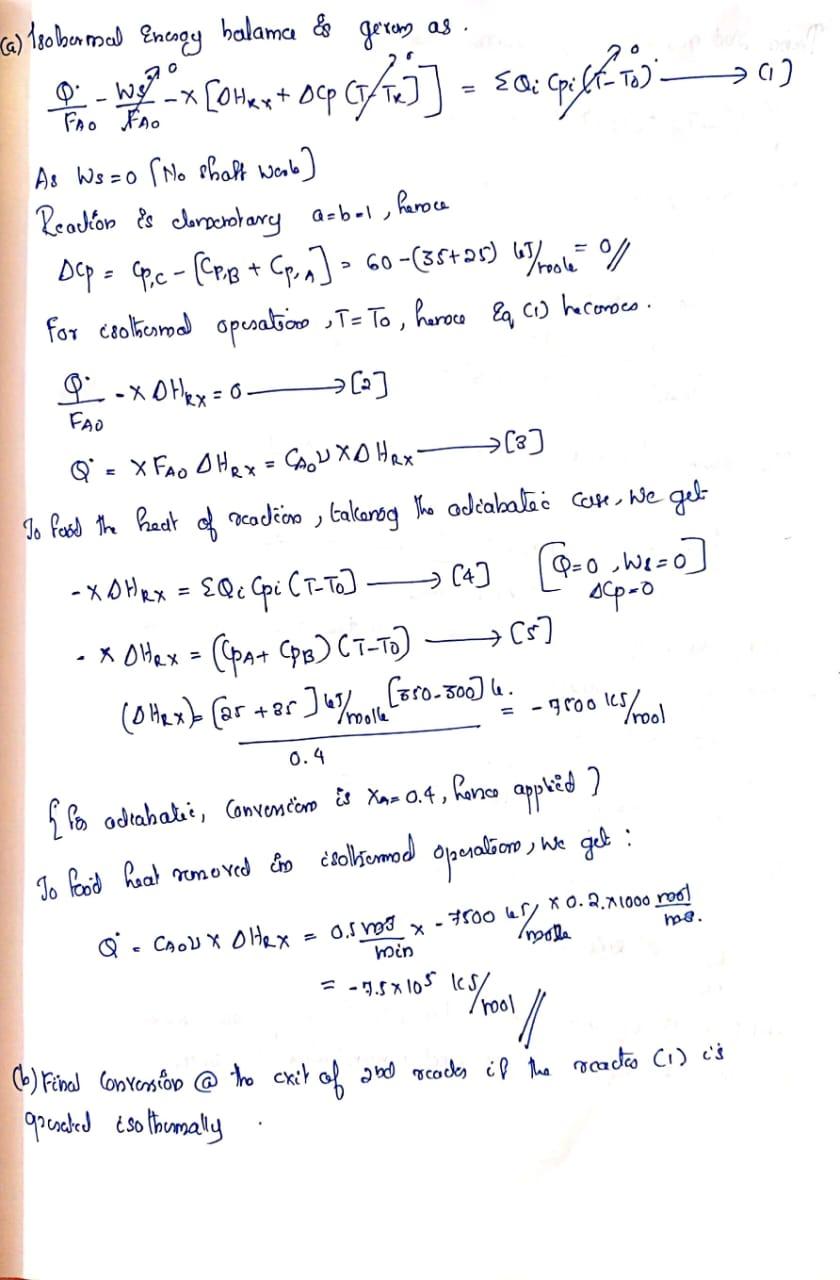 (a) Isothermal Energy balance is given as .
Q̇/FAO - Ws/FAO →0 - X [ΔHRX + ΔCp (T - TR)] →0 = ΣQi Cpi (T - To) →0 ⟶ (1)
As Ws = 0 [No shaft work]
Reaction is elementary a=b=1 , hence
ΔCp = Cp,C - [Cp,B + Cp,A] = 60 - (35+25) kJ/mole = 0//
For isothermal operation , T = To , hence Eq (1) becomes .
Q̇/FAO - X ΔHRX = 0 ⟶ [2]
Q̇ = X FAO ΔHRX = CAO υ X ΔHRX ⟶ [3]
To find the heat of reaction , taking the adiabatic case, we get
- X ΔHRX = ΣQi Cpi (T - To] ⟶ [4] [Q=0 , Ws=0]
ΔCp=0
- X ΔHRX = (CpA + CpB) (T - To) ⟶ [5]
(ΔHRX) = [25 + 35] kJ/mole [350-300] k. / 0.4 = - 7500 kJ/mol
{ for adiabatic, Conversion is XA = 0.4 , hence applied }
To find heat removed in isothermal operation , we get :
Q̇ = CAO υ X ΔHRX = 0.5 m3/min x - 7500 kJ/mole x 0.2 x 1000 mol/m3.
= - 7.5 x 10⁵ kJ/mol //
(b) Final Conversion @ the exit of 2nd reactor if the reactor (1) is
operated isothermally .